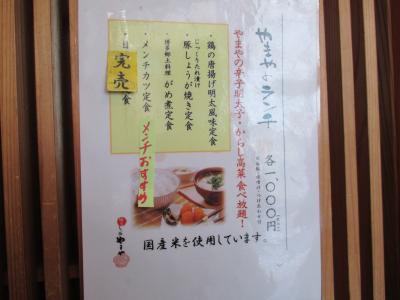 やまやのランチ
各一、〇〇〇円
やまやの辛子明太子・からし高菜食べ放題！
・鶏の唐揚げ明太風味定食
じっくりたれ漬け
・豚しょうが焼き定食
博多郷土料理
・がめ煮定食
・メンチカツ定食
メンチおすすめ
完売
食
国産米を使用しています。
やまや